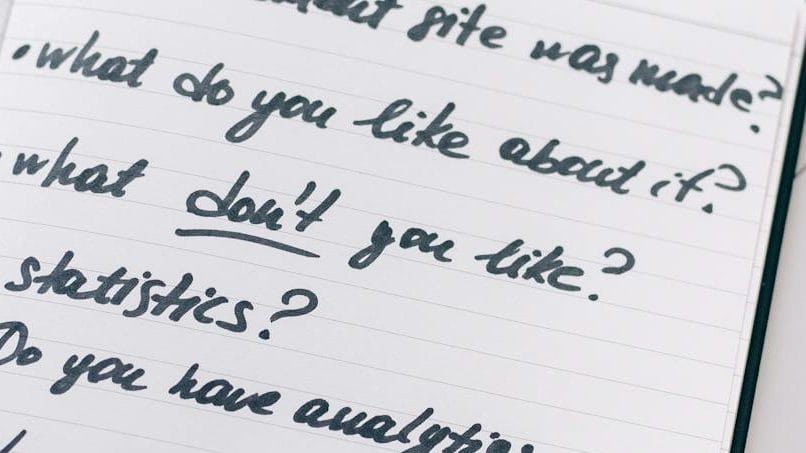 site was made?
• what do you like about it?
what don't you like?
statistics?
Do you have